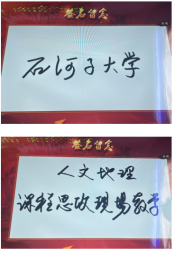 签名留念
石河子大学
签名留念
人文地理
课程思政现场教学